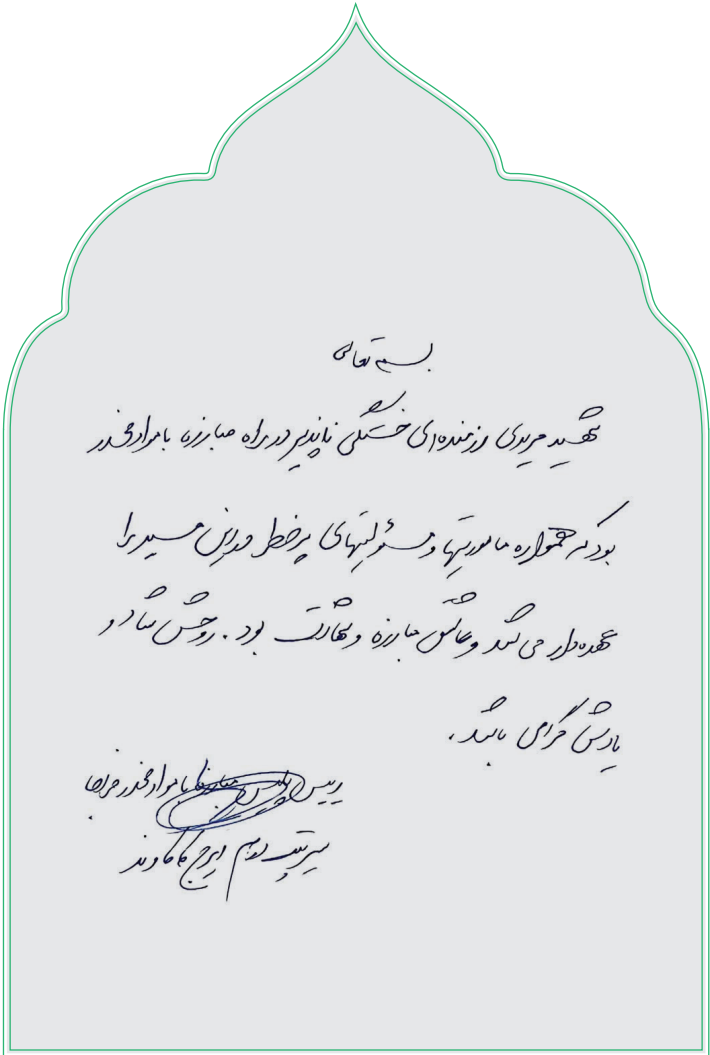 بسمه تعالی
شهید مریدی رزمنده‌ای خستگی ناپذیر در راه مبارزه با مواد مخدر
بود که همواره ماموریتها و مسئولیتهای پرخطر در این مسیر را
عهده‌دار می شد و عاشق مبارزه و شهادت بود. روحش شاد و
یادش گرامی باشد.
رییس پلیس مبارزه با مواد مخدر فراجا
سرتیپ دوم ایرج کاکاوند